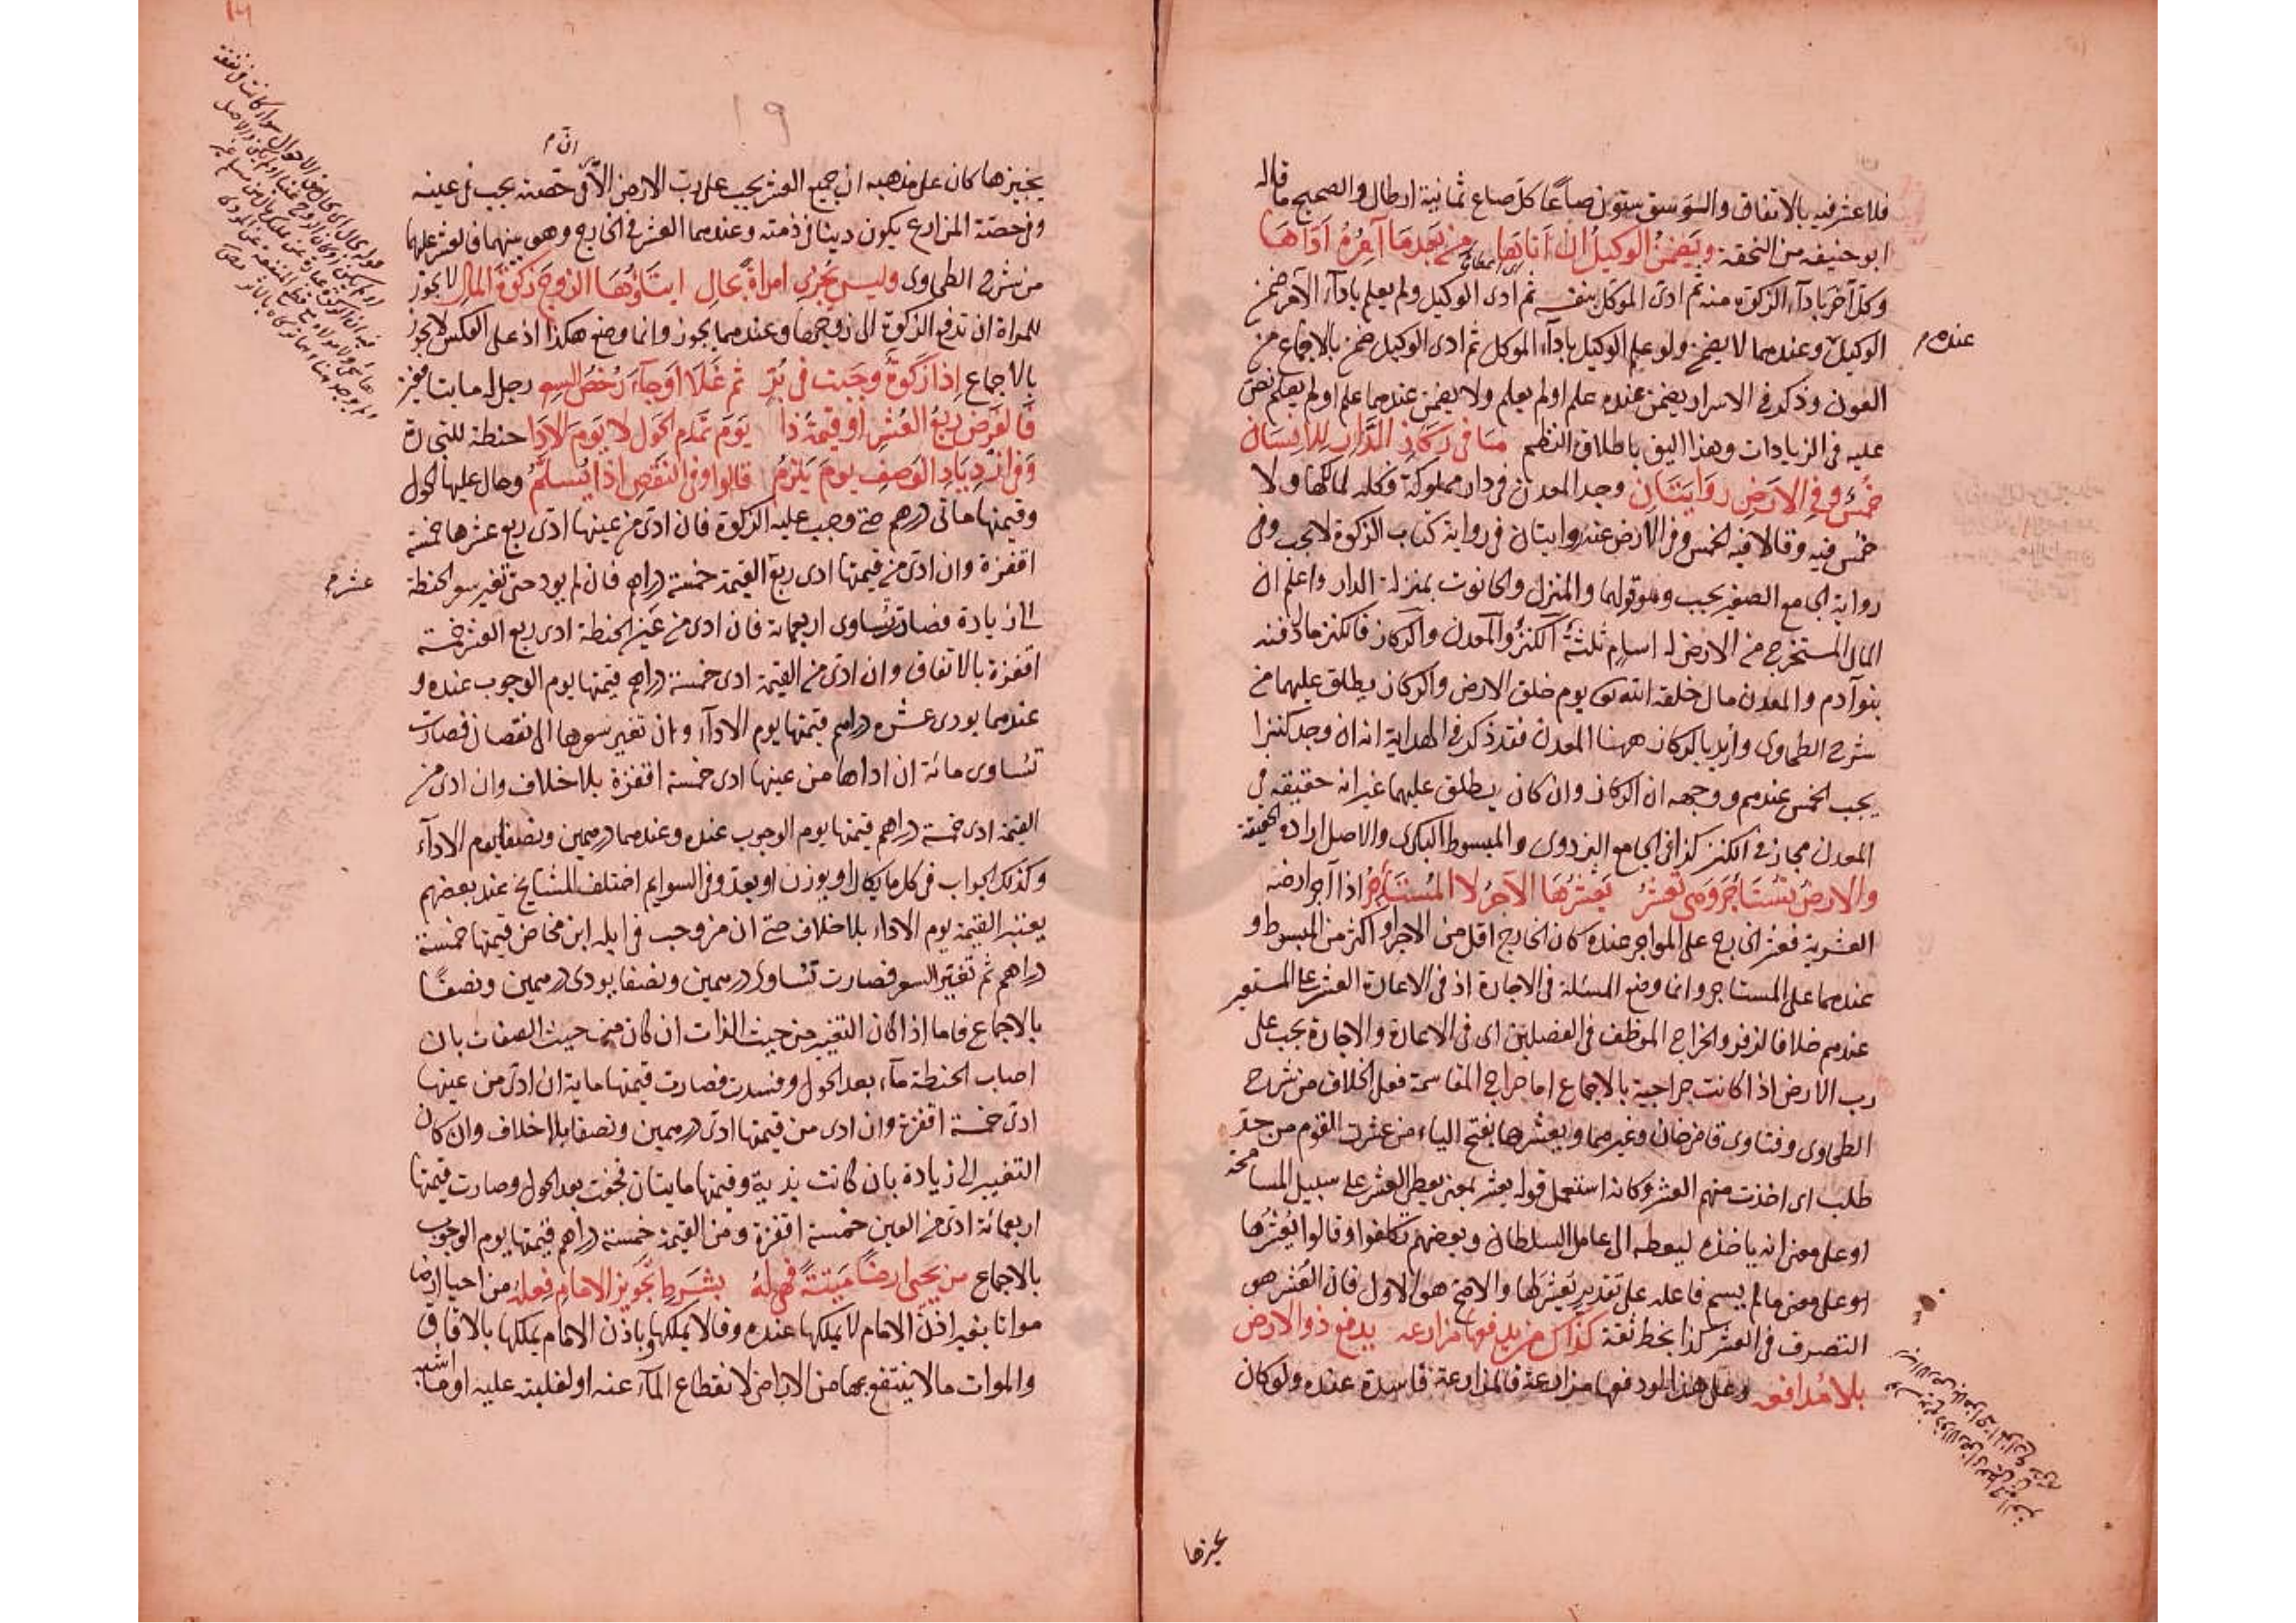 فلا عشر فيه بالاتفاق والوسق ستون صاعا كل صاع ثمانية ارطال والصحيح ما قاله
ابو حنيفه من التحفة ويضمن الوكيل ان اتاها من بعد ما آمره اداها
اى اعطاها
وكل آخر باداء الزكوة منه ثم ادى الموكل بنفسه ثم ادى الوكيل ولم يعلم باداء الآمر ضمن
الوكيل وعندهما لا يضمن ولو علم الوكيل باداء الموكل ثم ادى الوكيل ضمن بالاجماع من
عنده م
العون وذكر فى الاسرار يضمن عنده علم او لم يعلم ولا يضمن عندهما علم او لم يعلم نص
عليه فى الزيادات وهذا اليق باطلاق النظم ما فى ركاز الدار للانسان
خمس وفى الارض روايتان وجد المعدن فى دار مملوكة فكله لمالكها ولا
خمس فيه وقالا فيه الخمس وفى الارض عنده روايتان فى رواية كتاب الزكوة لا يجب وفى
رواية الجامع الصغير يجب وهو قولهما والمنزل والحانوت بمنزلة الدار واعلم ان
المال المستخرج من الارض له اسام ثلثة الكنز والمعدن والركاز فالكنز ما دفنه
بنو آدم والمعدن مال خلقه الله تعالى يوم خلق الارض والركاز يطلق عليهما من
شرح الطحاوى واريد بالركاز ههنا المعدن فقد ذكر فى الهداية انه ان وجد كنزا
يجب الخمس عندهم ووجهه ان الركاز وان كان يطلق عليهما غير انه حقيقة في
المعدن مجاز في الكنز كذا فى الجامع البزدوى والمبسوط البكرى والاصل ارادة الحقيقة
والارض تستاجر وهى تعشر يعشرها الآجر لا المستاجر اذا آجر ارضه
العشرية فعشر الخارج على المواجر عنده كان الخارج اقل من الاجر او اكثر من المبسوط و
عندهما على المستاجر وانما وضع المسئلة فى الاجارة اذ فى الاعارة العشر على المستعير
عندهم خلافا لزفر والخراج الموظف فى الفصلين اى فى الاعارة والاجارة يجب على
رب الارض اذا كانت خراجية بالاجماع اما خراج المقاسمة فعلى الخلاف من شرح
الطحاوى وفتاوى قاضى خان وغيرهما ويعشرها بفتح الياء من عشرت القوم من حد
طلب اى اخذت منهم العشر وكانه استعمل قوله يعشر بمعنى يعطى العشر على سبيل المسامحة
او على معنى انه ياخذه ليعطيه الى عامل السلطان وبعضهم تكلفوا وقالوا يعشرها
او على معنى ما لم يسم فاعله على تقدير يعشرها والاصح هو الاول فان العشر هو
التصرف فى العشر كذا بخط ثقة كذاك من يدفعها مزارعه يدفع ذو الارض
بلا مدافعه وعلى هذا لو دفعها مزارعة فالمزارعة فاسدة عنده ولو كان
يجيزها
١٩
ان م
يجيزها كان على مذهبه ان جميع العشر يجب على رب الارض الا فى حصته يجب فى عينه
وفى حصة المزارع يكون دينا فى ذمته وعندهما العشر فى الخارج وهو بينهما فالعشر عليهما
من شرح الطحاوى وليس يجزى امراة بحال ايتاؤها الزوج زكوة المال لا يجوز
للمراة ان تدفع الزكوة الى زوجها وعندهما يجوز وانما وضع هكذا اذ على العكس لا يجوز
بالاجماع اذا زكوة وجبت فى بر ثم غلا او جاء رخص السعر رجل له مايتا قفيز
فالفرض ربع العشر او قيمة ذا يوم تمام الحول لا يوم الادا حنطة للتجارة
وفى ازدياد الوصف يوم يلزم قالوا وفى النقص اذا يسلم وحال عليها الحول
وقيمتها مائتى درهم حتى وجب عليه الزكوة فان ادى من عينها ادى ربع عشرها خمسة
اقفزة وان ادى من قيمتها ادى ربع القيمة خمسة دراهم فان لم يود حتى تغير سعر الحنطة
عشر م
الى زيادة فصارت تساوى اربعمائة فان ادى من عين الحنطة ادى ربع العشر خمسة
اقفزة بالاتفاق وان ادى من القيمة ادى خمسة دراهم قيمتها يوم الوجوب عنده و
عندهما يودى عشره دراهم قيمتها يوم الاداء وان تغير سعرها الى نقصان فصارت
تساوى مائة ان اداها من عينها ادى خمسة اقفزة بلا خلاف وان ادى من
القيمة ادى خمسة دراهم قيمتها يوم الوجوب عنده وعندهما درهمين ونصفا يوم الاداء
وكذلك الجواب فى كل ما يكال او يوزن او يعد وفى السوايم اختلف المشايخ عند بعضهم
يعتبر القيمة يوم الاداء بلا خلاف حتى ان من وجب فى ابله ابن مخاض قيمتها خمسة
دراهم ثم تغير السعر فصارت تساوى درهمين ونصفا يودى درهمين ونصفا
بالاجماع فاما اذا كان التغير من حيث الذات ان كان من حيث الصفات بان
اصاب الحنطة ماء بعد الحول وفسدت فصارت قيمتها ماية ان ادى من عينها
ادى خمسة اقفزة وان ادى من قيمتها ادى درهمين ونصفا بلا خلاف وان كان
التغير الى زيادة بان كانت ندية وقيمتها مايتان فجفت بعد الحول وصارت قيمتها
اربعمائة ادى من العين خمسة اقفزة ومن القيمة خمسة دراهم قيمتها يوم الوجوب
بالاجماع من يحيى ارضا ميتة فهى له بشرط تجويز الامام فعله من احيا ارضا
مواتا بغير اذن الامام لا يملكها عنده وقالا يملكها وباذن الامام يملكها بالاتفاق
والموات ما لا ينتفع بها من الاراضى لانقطاع الماء عنه او لغلبته عليه او ما اشبه